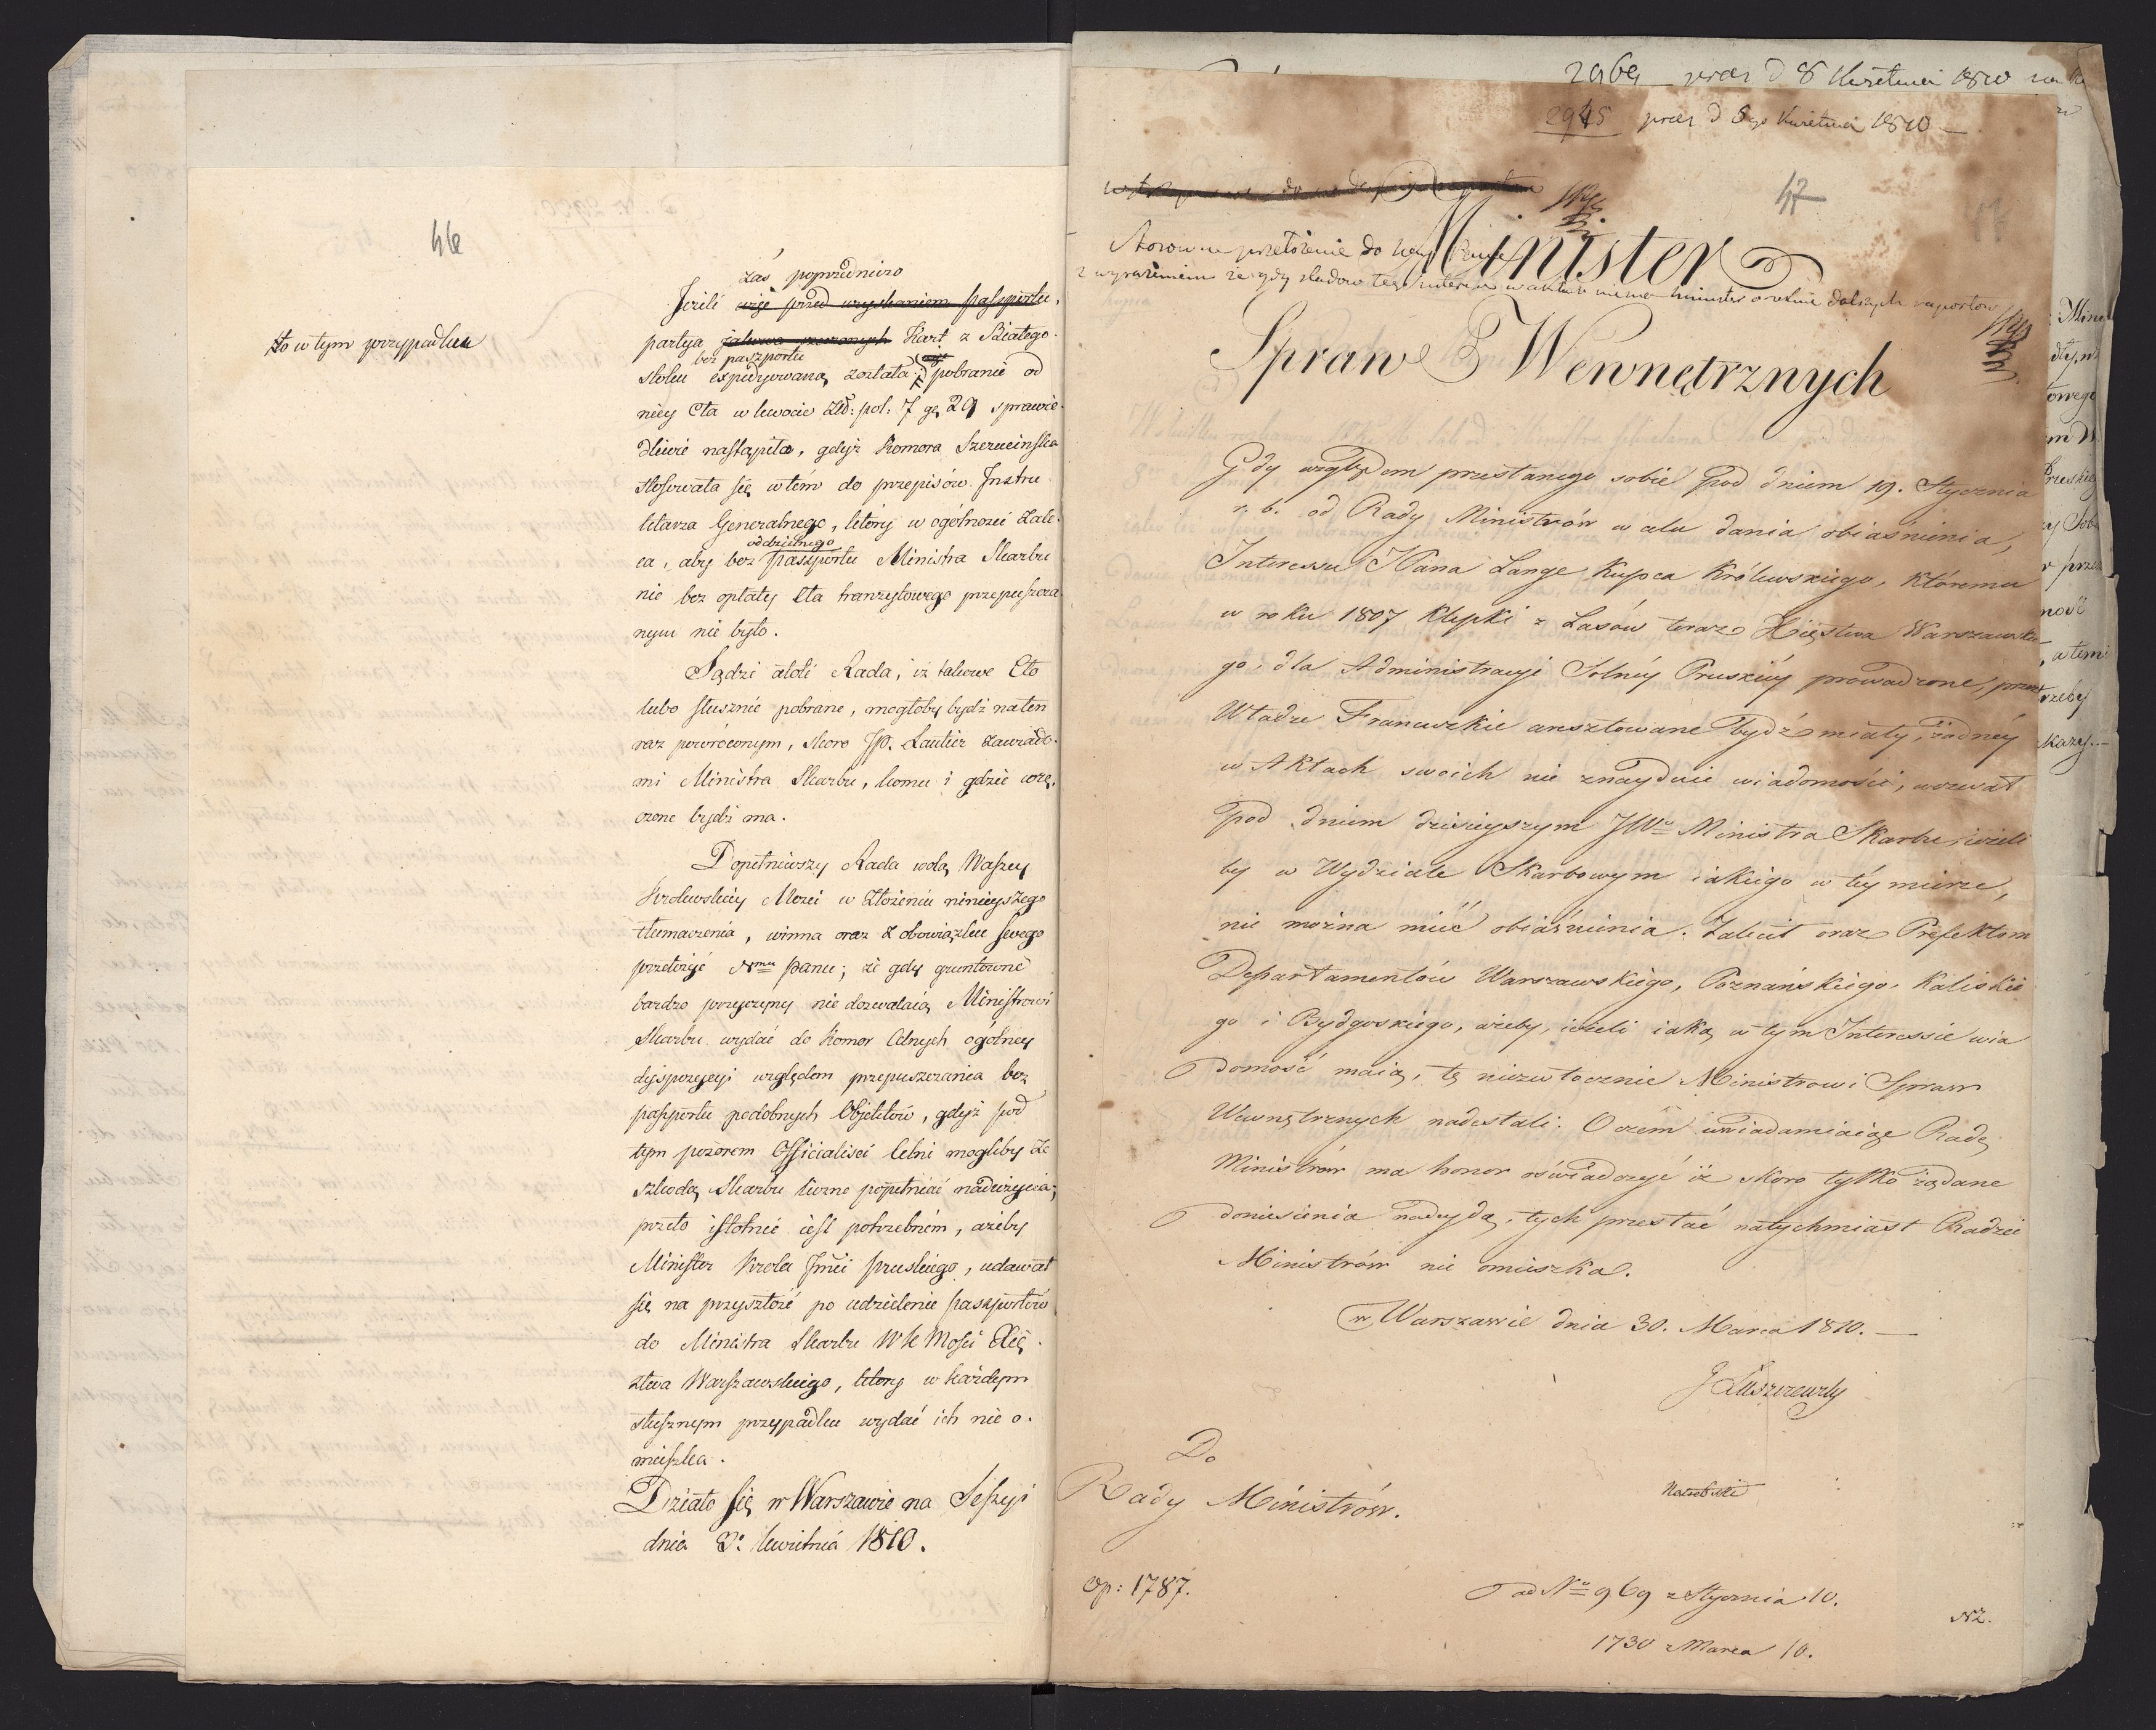 46
to w tym przypadku
zaś poprzedniczo
Jeżeli wyż przed uzyskaniem paszportu,
partya Kart z Białego
bez paszportu
stoku expedyowaną została; pobranie od
niey Cła w kwocie Złł: pol: 7 gr 29 sprawie-
dliwie nastąpiło, gdyż Komora Szczucińska
stosowała się w tém do przepisów Instru
ktarza Generalnego, który w ogólności zale-
oddzielnego
ca, aby bez paszportu Ministra Skarbu
nic bez opłaty Cła tranzytowego przepuszcza
nym nie było.
Sądzi atoli Rada, iż takowe Cło
lubo słusznie pobrane, mogłoby bydź na ten
raz powróconym, skoro JP. Lautier zawiado-
mi Ministra Skarbu, komu i gdzie wrę-
czone bydź ma.
Dopełniwszy Rada wolą Waszey
Krolewskiey Mości w złożeniu ninieyszego
tłumaczenia, winna oraz z obowiązku swego
przełożyć Nmu Panu; że gdy gruntowne
bardzo przyczyny nie dozwalaią Ministrowi
Skarbu wydać do Komor Celnych ogólney
dyspozycyi względem przepuszczania bez
paszportu podobnych Objektów, gdyż pod
tym pozorem Officialisci Celni mogliby ze
szkodą Skarbu liczne popełniać nadużycia;
przeto istotnie iest potrzebném, ażeby
Minister Krola Jmci pruskiego, udawał
się na przyszłość po udzielenie paszportów
do Ministra Skarbu W K Mości Xię-
ztwa Warszawskiego, ktory w każdym
słusznym przypadku wydać ich nie o-
mieszka.
Działo się w Warszawie na Seszyi
dnia 3o kwietnia 1810.
2969 praes d 8 Kwietnia 1810
2945 praes d 8go Kwietnia 1810 —
47
Stosowne przełożenie do
z wyrażeniem że gdy śladow tego interesu w aktach niema Minister dalszych raportow
Minister
Spraw Wewnętrznych
Gdy względem przesłanego sobie pod dniem 19. Stycznia
r. b. od Rady Ministrów w celu dania obiaśnienia,
Interessu Pana Lange Kupca Królewskiego, któremu
w roku 1807 Klepki z Lasów teraz Xięstwa Warszawskie
go, dla Administracyi Solnéy Pruskiéy prowadzone, przez
Władze Francuzkie aresztowane bydź miały, żadnéy
w Aktach swoich nie znayduie wiadomości, wezwał
pod dniem dzisieyszym JWo Ministra Skarbu, ieżeli
by w Wydziale Skarbowym iakiego w téy mierze,
nie można mieć obiaśnienia. Zalecił oraz Prefektom
Departamentów Warszawskiego, Poznańskiego, Kaliskie
go i Bydgoskiego, ażeby, ieżeli iaką w tym Interessie wia
domość maią, tę niezwłocznie Ministrowi Spraw
Wewnętrznych nadesłali. O czém uwiadamiaiąc Radę
Ministrów ma honor oświadczyć iż skoro tylko żądane
doniesienia nadeydą, tych przesłać natychmiast Radzie
Ministrów nie omieszka.
w Warszawie dnia 30. Marca 1810. —
J Łuszczewsky
Do
Rady Ministrów.
Exp: 1787.
ad No 969 z Stycznia 10.
1730 z Marca 10.
NZ.